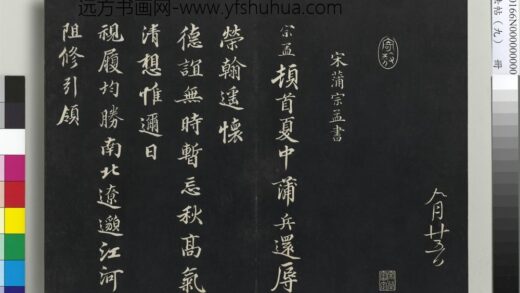 远方书画网-www.yfshuhua.com
宋蒲宗孟書
宗孟頓首夏中蒲兵還辱
榮翰遥懷
德誼無時暫忘秋髙氣
清想惟邇日
視履均勝南北遼邈江河
阻修引領
八月廿五日
0166N000000000
帖(九) 冊